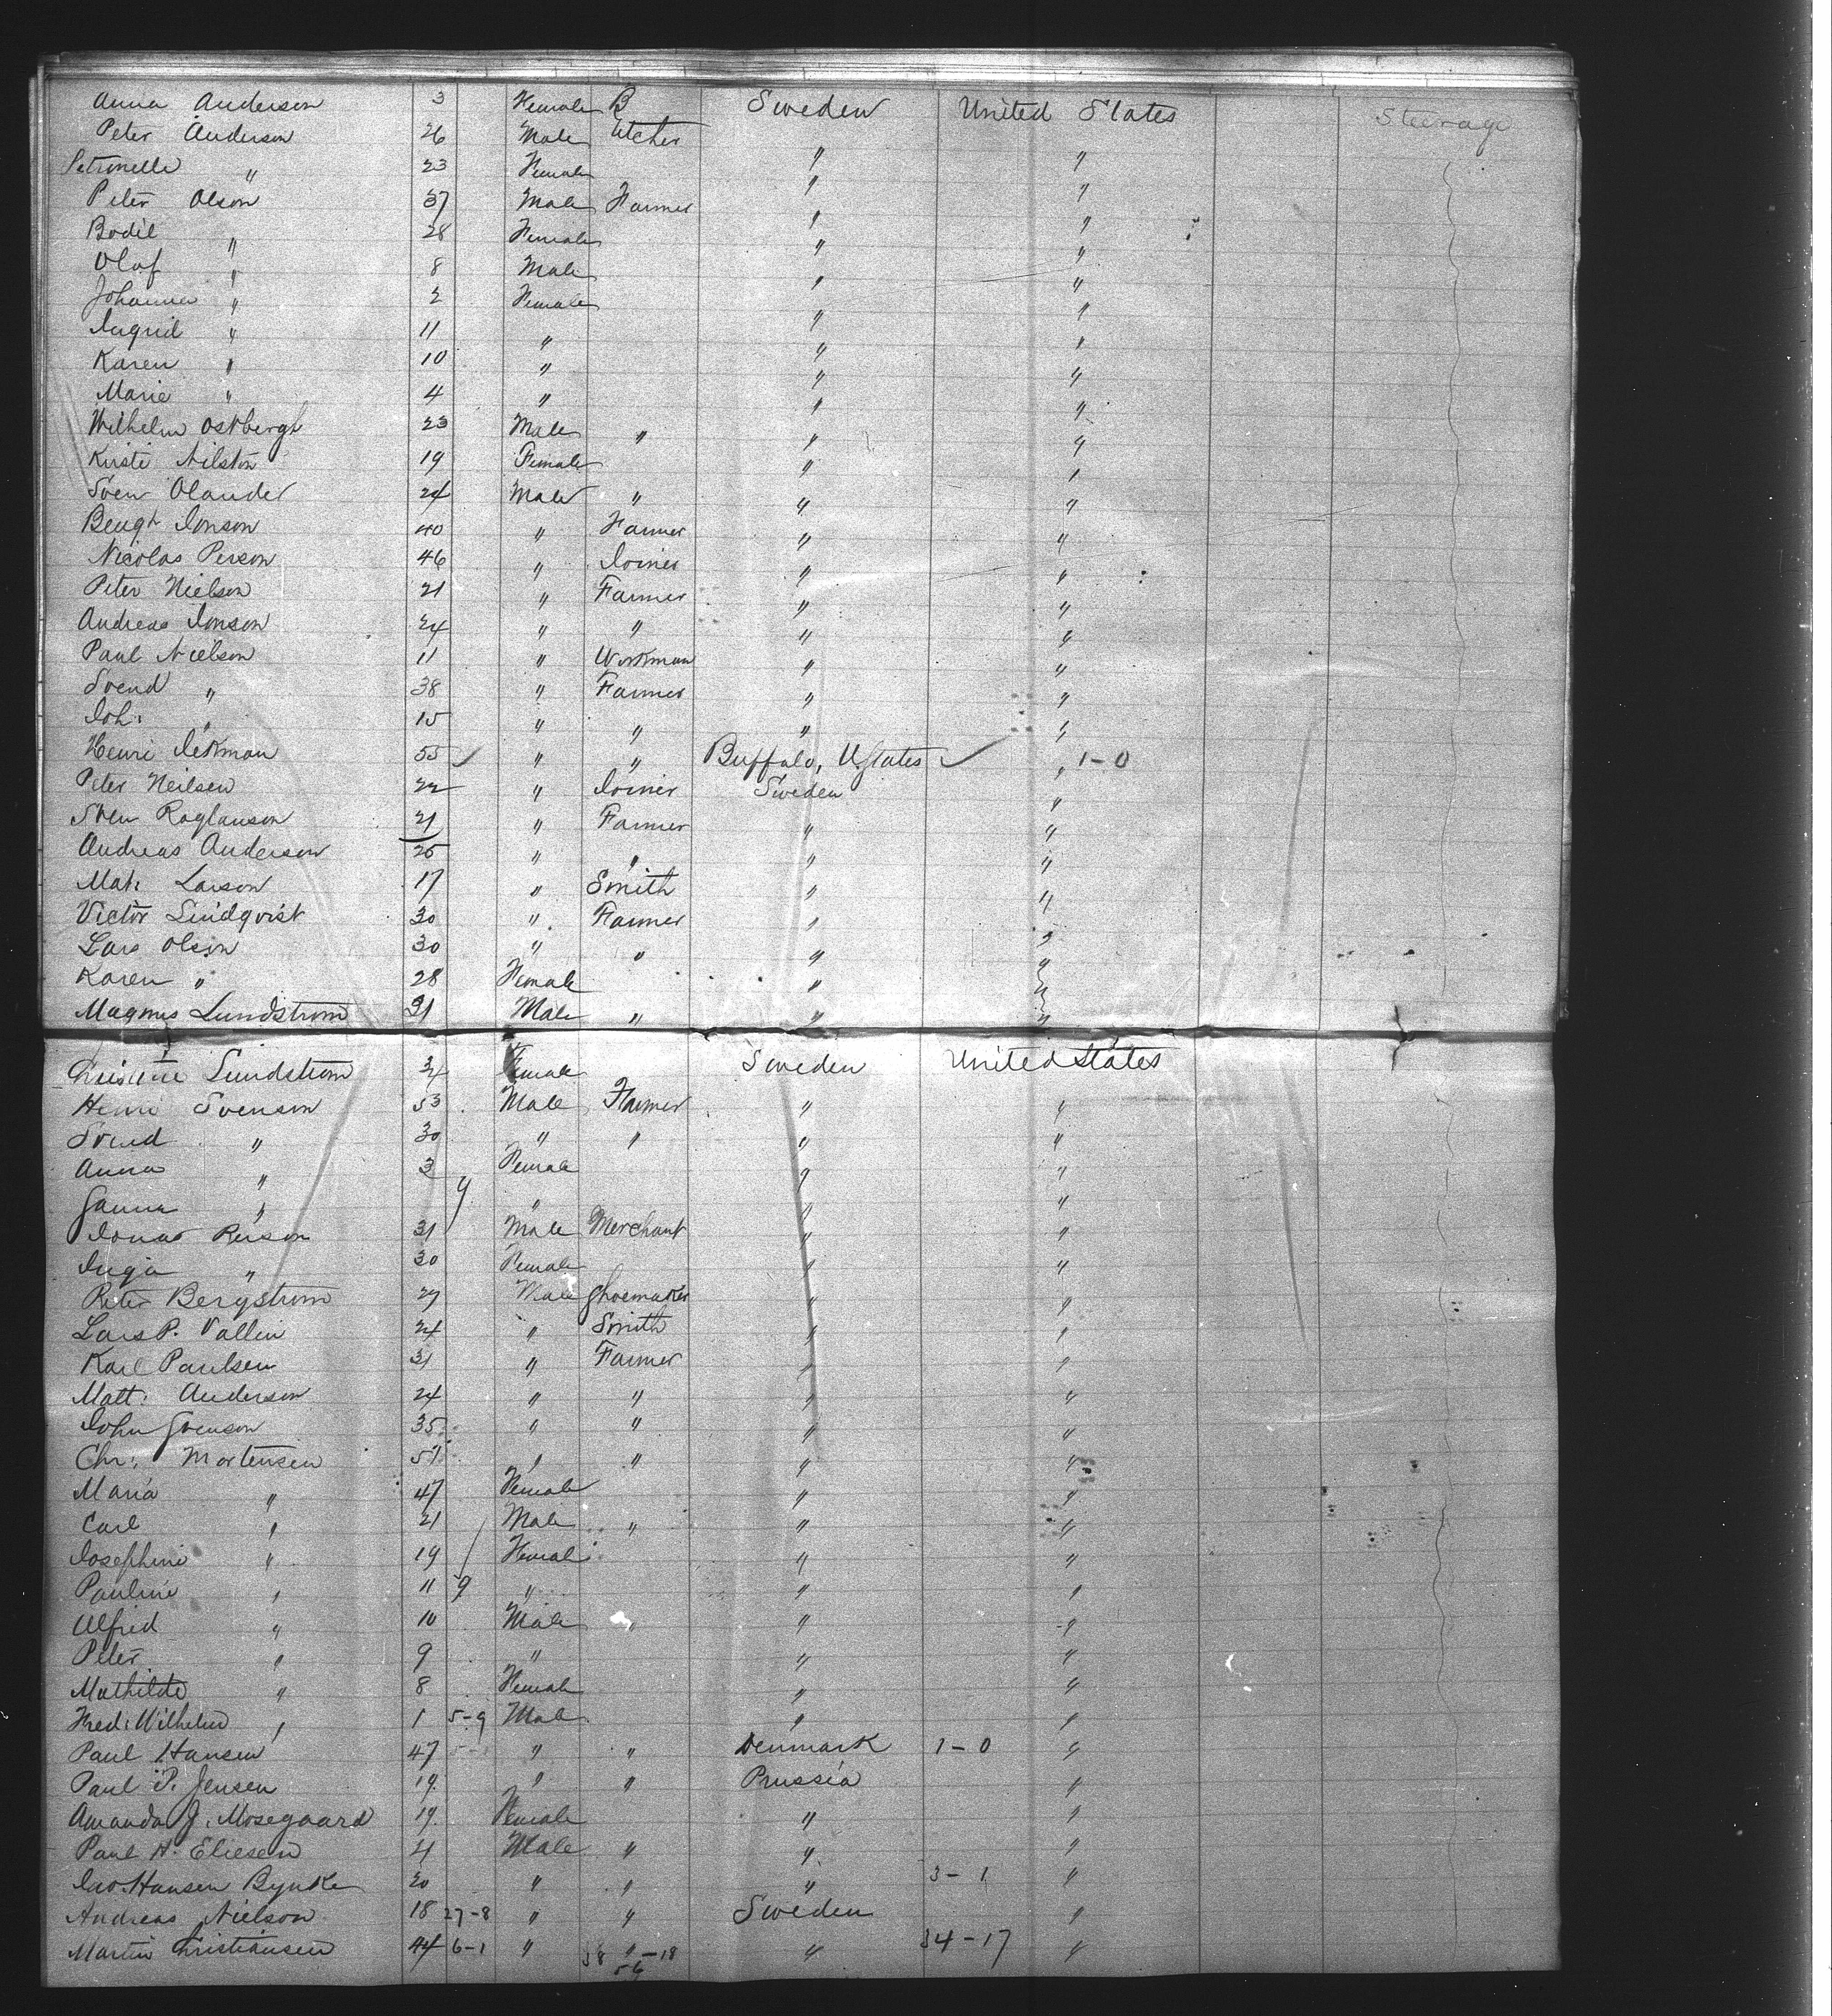 Anna Anderson 3 Female B Sweden United States Steerage
Peter Anderson 26 Male utcher " "
Petronelle " 23 Female " "
Peter Olson 37 Male Farmer " "
Bodil " 28 Female " "
Olaf " 8 Male " "
Johanna " 2 Female " "
Ingrid " 11 " " "
Karen " 10 " " "
Marie " 4 " " "
Wilhelm Ostbergh 23 Male " " "
Kirsti Nilston 19 Female " "
Sven Olander 24 Male " " "
Bengt Jonson 40 " Farmer " "
Nicolas Person 46 " Joiner " "
Peter Nielson 21 " Farmer " "
Andreas Jonson 24 " " " "
Paul Nielson 11 " Workman " "
Svend " 38 " Farmer " "
Joh: " 15 " " " "
Henri 55 " " Buffalo, U.States " 1-0
Peter Neilsen 22 " Joiner Sweden "
Sven Roglanson 21 " Farmer " "
Andreas Anderson 25 " " " "
Mat: Larson 17 " Smith " "
Victor Lindqvist 30 " Farmer " "
Lars Olson 30 " " " "
Karen " 28 Female " "
Magnus Lundstrom 31 Male " " "
Christine Lundstrom 34 Female Sweden United States
Henri Svenson 53 Male Farmer " "
Svend " 30 " " " "
Anna " 3 Female " "
" " " "
Jonas Person 31 Male Merchant " "
Inga " 30 Female " "
Peter Bergstrom 27 Male Shoemaker " "
Lars P. Vallin 24 " Smith " "
Karl Paulsen 31 " Farmer " "
Matt: Anderson 24 " " " "
John Svenson 35 " " " "
Chr: Mortensen 57 " " " "
Maria " 47 Female " "
Carl " 21 Male " " "
Josephine " 19 Female " "
Pauline " 11 9 " " "
Alfred " 10 Male " " "
Peter " 9 " " "
Mathilde " 8 Female " "
Fred: Wilhelm " 1 5-9 Male " "
Paul Hansen 47 " " Denmark 1-0 "
Paul P. Jensen 19 " " Prussia "
Amanda J. Mosegaard 19 Female " "
Paul H. Eliesen 21 Male " " "
Hansen Bynke 20 " " " 3-1 "
Andreas Nielson 18 27-8 " " Sweden "
Martin Christiansen 44 6-1 " " " 34-17 "
38-18
56